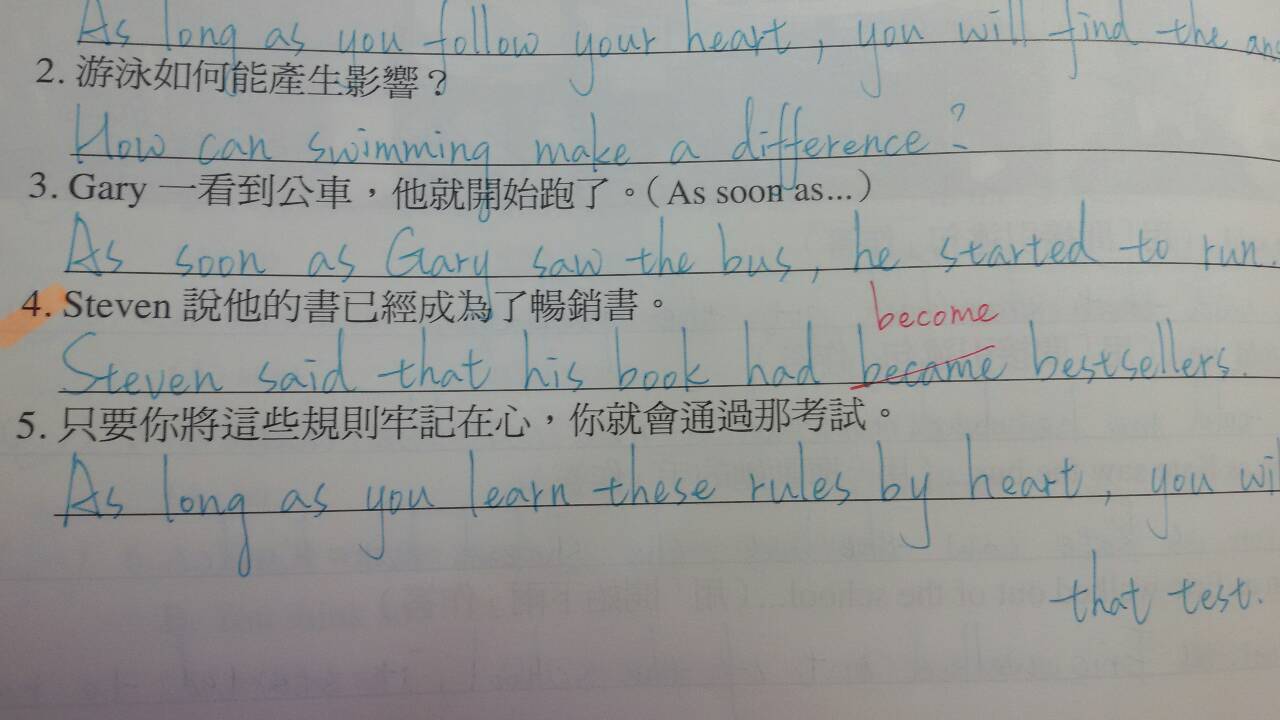 As long as you follow your heart, you will find the
2. 游泳如何能產生影響？
How can swimming make a difference?
3. Gary 一看到公車，他就開始跑了。（As soon as...）
As soon as Gary saw the bus, he started to run.
4. Steven 說他的書已經成為了暢銷書。
become
Steven said that his book had became bestsellers.
5. 只要你將這些規則牢記在心，你就會通過那考試。
As long as you learn these rules by heart, you wi
that test.